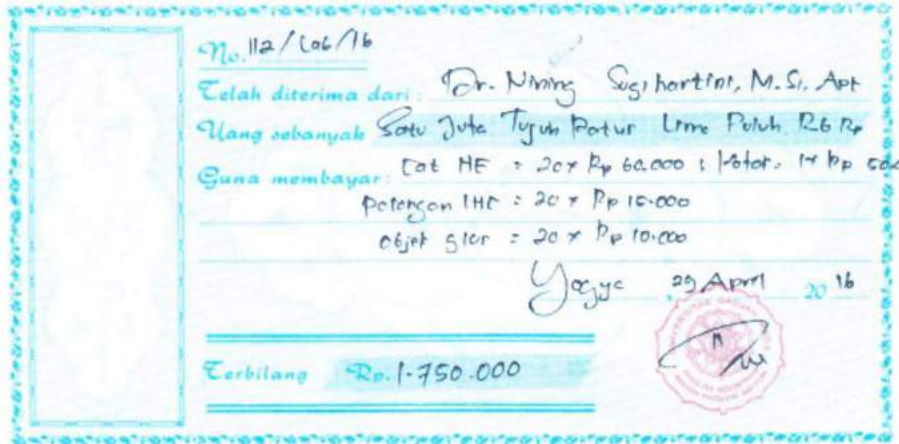 No. 112/Lab/16
Telah diterima dari : Dr. Nining Sugihartini, M.Si, Apt
Uang sebanyak Satu Juta Tujuh Ratus Lima Puluh Rb Rp
Guna membayar: Cat HE = 20 x Rp 60.000 ; Potor. 1 x Rp 50.
potongan IHC = 20 x Rp 15.000
objek glas = 20 x Rp 10.000
Yogya, 29 April 2016
Terbilang Rp. 1.750.000
UNIVERSITAS GADJAH